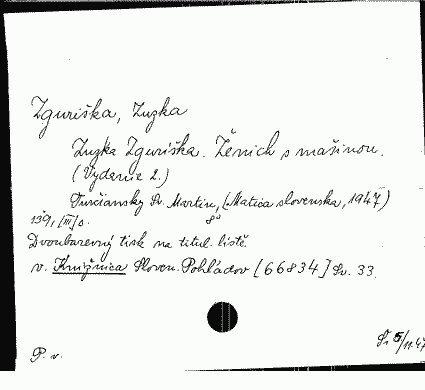 Zguriška, Zuzka
Zuzka Zguriška. Ženich s mašinou.
(Vydanie 2.)
Turčiansky Sv. Martin, (Matica slovenska, 1947)
139, [III] s. 8°
Dvoubarevný tisk na titul. listě.
v. Knižnica Sloven. Pohľadov [66834] Sv. 33.
P. v.